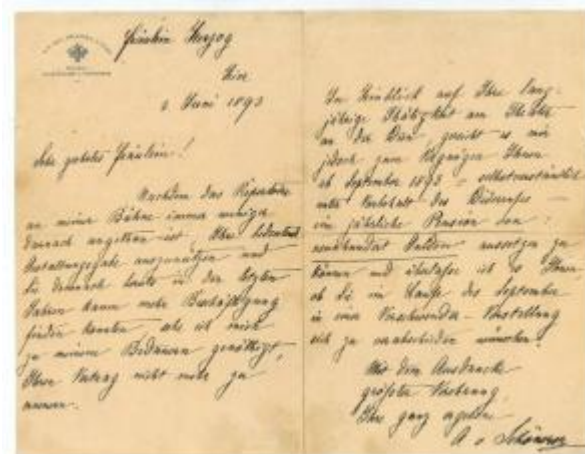 Fräulein Herzog
Hier
Juni 1893
Sehr geehrtes Fräulein!
Nachdem das Repertoire
an meiner Bühne immer weniger
darnach angethan ist, Ihre bedeutende
Gestaltungsgabe auszunützen und
Sie demnach heute in den letzten
Jahren kaum mehr Beschäftigung
finden konnten, sehe ich mich
zu meinem Bedauern genöthigt,
Ihren Vertrag nicht mehr zu
erneuern.
Im Hinblick auf Ihre lang-
jährige Thätigkeit am Theater
an der Wien gereicht es mir
jedoch zum Vergnügen Ihnen
ab September 1893 – selbstverständlich
unter Vorbehalt des Widerrufes –
eine jährliche Pension von
neunhundert Gulden aussetzen zu
können und überlasse ich es Ihnen
ob Sie im Laufe des September
in einer Vorstellung
sich zu verabschieden wünschen.
Mit dem Ausdrucke
größter Hochachtung
Ihre ganz ergebene
A v Schönerer